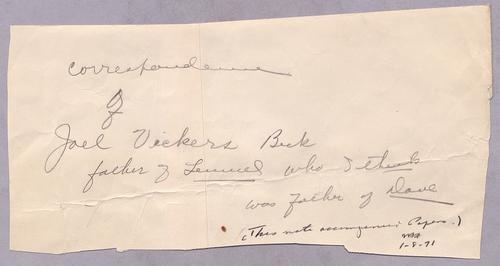 Correspondence
of
Joel Vickers Beck
father of Lemuel who I think
was father of Dave
(This note accompanied Papers.)
1-8-71